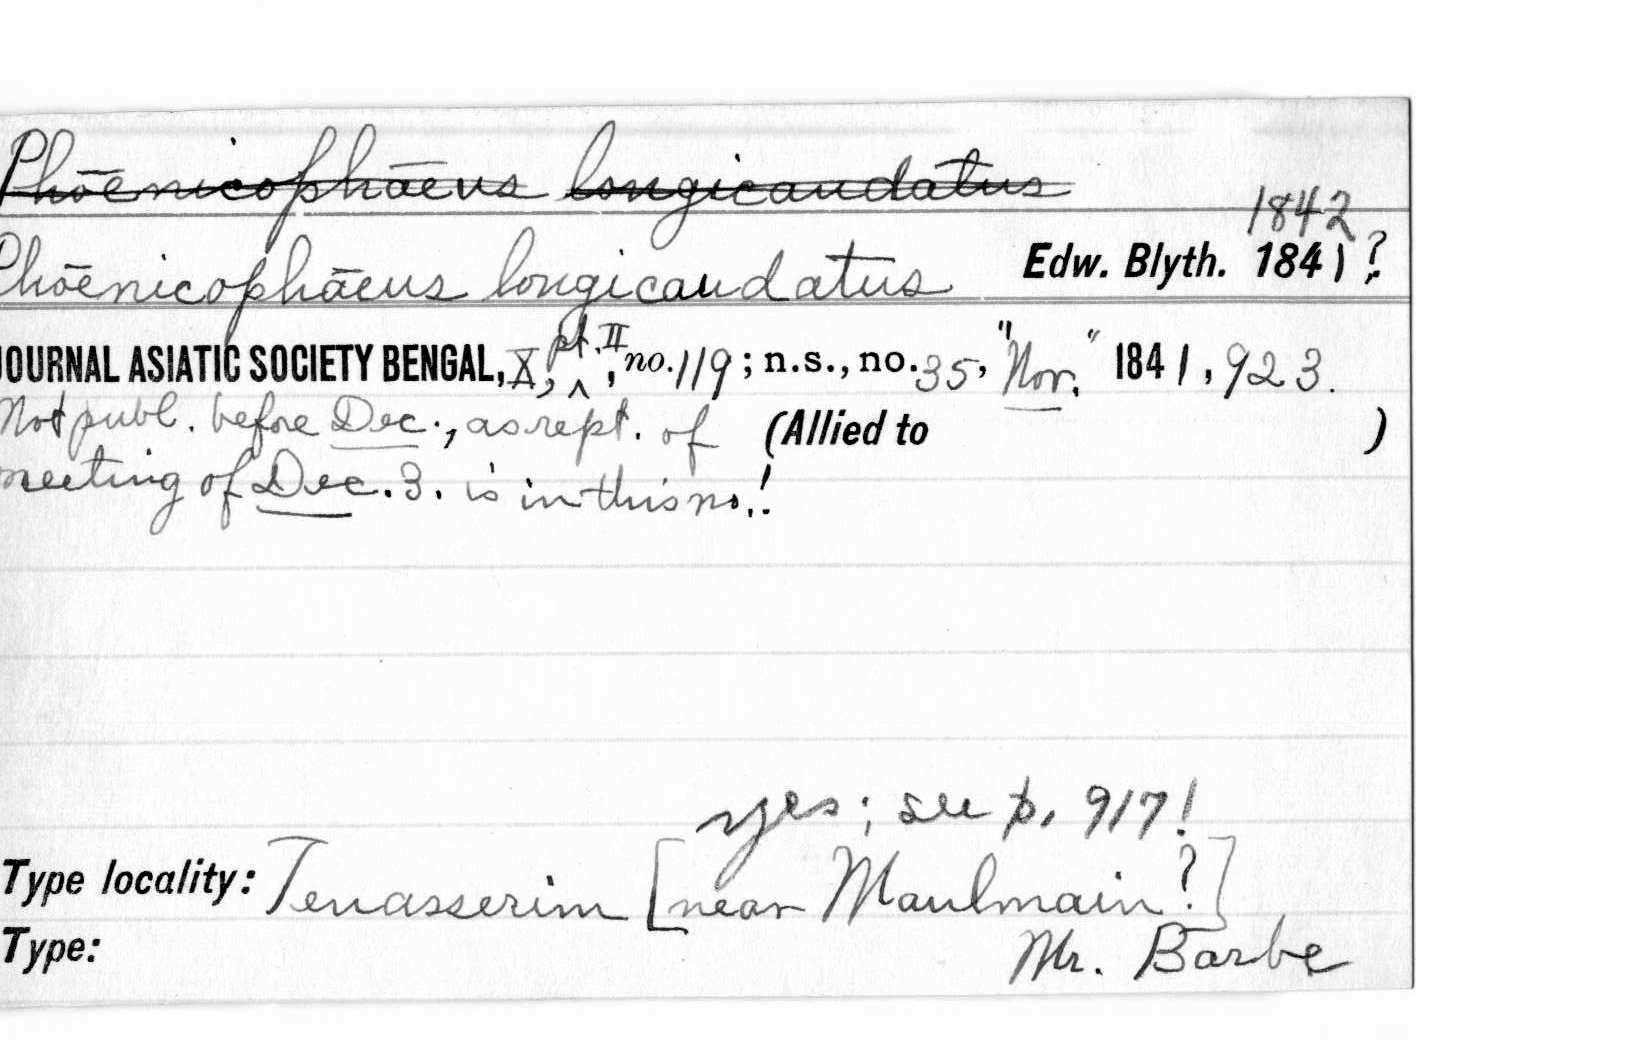 Phōenicophāeus longicaudatus
1842
Phōenicophāeus longicaudatus Edw. Blyth. 1841?
JOURNAL ASIATIC SOCIETY BENGAL, X, pt. II, no. 119; n.s., no. 35, "Nov." 1841, 923.
Not publ. before Dec., as rept. of (Allied to )
meeting of Dec. 3. is in this no.!
yes; see p. 917!
Type locality: Tenasserim [near Maulmain?]
Type: Mr. Barbe